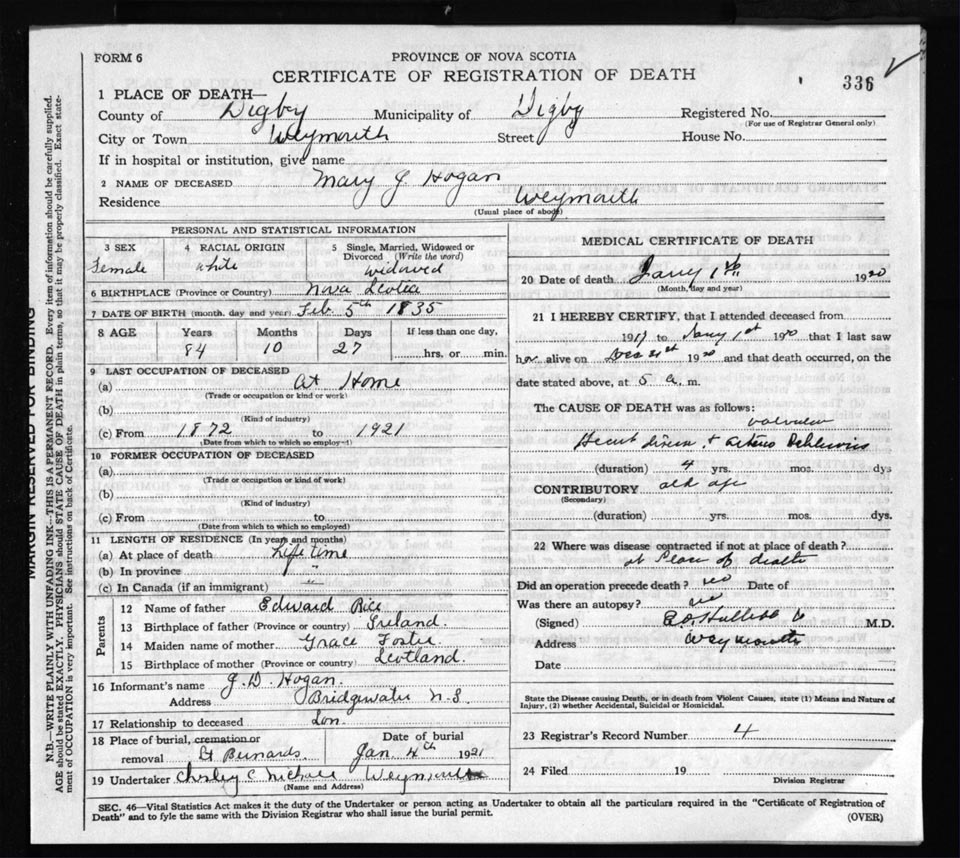 FORM 6
PROVINCE OF NOVA SCOTIA
CERTIFICATE OF REGISTRATION OF DEATH
336
1 PLACE OF DEATH—
County of Digby Municipality of Digby Registered No.
(For use of Registrar General only)
City or Town Weymouth Street House No.
If in hospital or institution, give name
2 NAME OF DECEASED Mary J. Hogan
Residence Weymouth
(Usual place of abode)
PERSONAL AND STATISTICAL INFORMATION
3 SEX Female
4 RACIAL ORIGIN white
5 Single, Married, Widowed or Divorced (Write the word) widowed
6 BIRTHPLACE (Province or Country) Nova Scotia
7 DATE OF BIRTH (month, day and year) Feb. 5th 1835
8 AGE Years Months Days If less than one day,
84 10 27 hrs. or min.
9 LAST OCCUPATION OF DECEASED
(a) At Home
(Trade or occupation or kind or work)
(b)
(Kind of industry)
(c) From 1872 to 1921
(Date from which to which so employed)
10 FORMER OCCUPATION OF DECEASED
(a)
(Trade or occupation or kind of work)
(b)
(Kind of industry)
(c) From to
(Date from which to which so employed)
11 LENGTH OF RESIDENCE (In years and months)
(a) At place of death Life time
(b) In province "
(c) In Canada (if an immigrant) "
Parents
12 Name of father Edward Rice
13 Birthplace of father (Province or country) Ireland.
14 Maiden name of mother Grace Foster
15 Birthplace of mother (Province or country) Scotland.
16 Informant's name J. D. Hogan.
Address Bridgewater N.S.
17 Relationship to deceased Son.
18 Place of burial, cremation or removal St Bernards
Date of burial Jan 4th 1921
19 Undertaker C Nichols Weymouth
(Name and Address)
MEDICAL CERTIFICATE OF DEATH
20 Date of death Jany 1st 1920
(Month, day and year)
21 I HEREBY CERTIFY, that I attended deceased from
1917 to Jany 1st 1920 that I last saw
her alive on Dec 31st 1920 and that death occurred, on the
date stated above, at 5 a. m.
The CAUSE OF DEATH was as follows:
valvular
Heart disease + arterio
(duration) 4 yrs. mos. dys
CONTRIBUTORY old age
(Secondary)
(duration) yrs. mos. dys.
22 Where was disease contracted if not at place of death?
at Place of death
Did an operation precede death? no Date of
Was there an autopsy? no
(Signed) M.D.
Address Weymouth
Date
State the Disease causing Death, or in death from Violent Causes, state (1) Means and Nature of
Injury, (2) whether Accidental, Suicidal or Homicidal.
23 Registrar's Record Number 4
24 Filed 19
Division Registrar
SEC. 46—Vital Statistics Act makes it the duty of the Undertaker or person acting as Undertaker to obtain all the particulars required in the "Certificate of Registration of
Death" and to fyle the same with the Division Registrar who shall issue the burial permit.
(OVER)
MARGIN RESERVED FOR BINDING
N.B.—WRITE PLAINLY WITH UNFADING INK—THIS IS A PERMANENT RECORD. Every item of information should be carefully supplied.
AGE should be stated EXACTLY. PHYSICIANS should STATE CAUSE OF DEATH in plain terms, so that it may be properly classified. Exact state-
ment of OCCUPATION is very important. See instructions on back of Certificate.